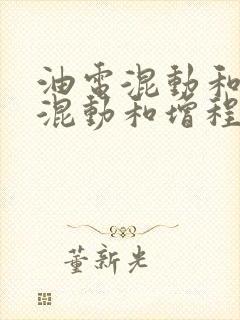 油电混動和
混動和增程
董新光